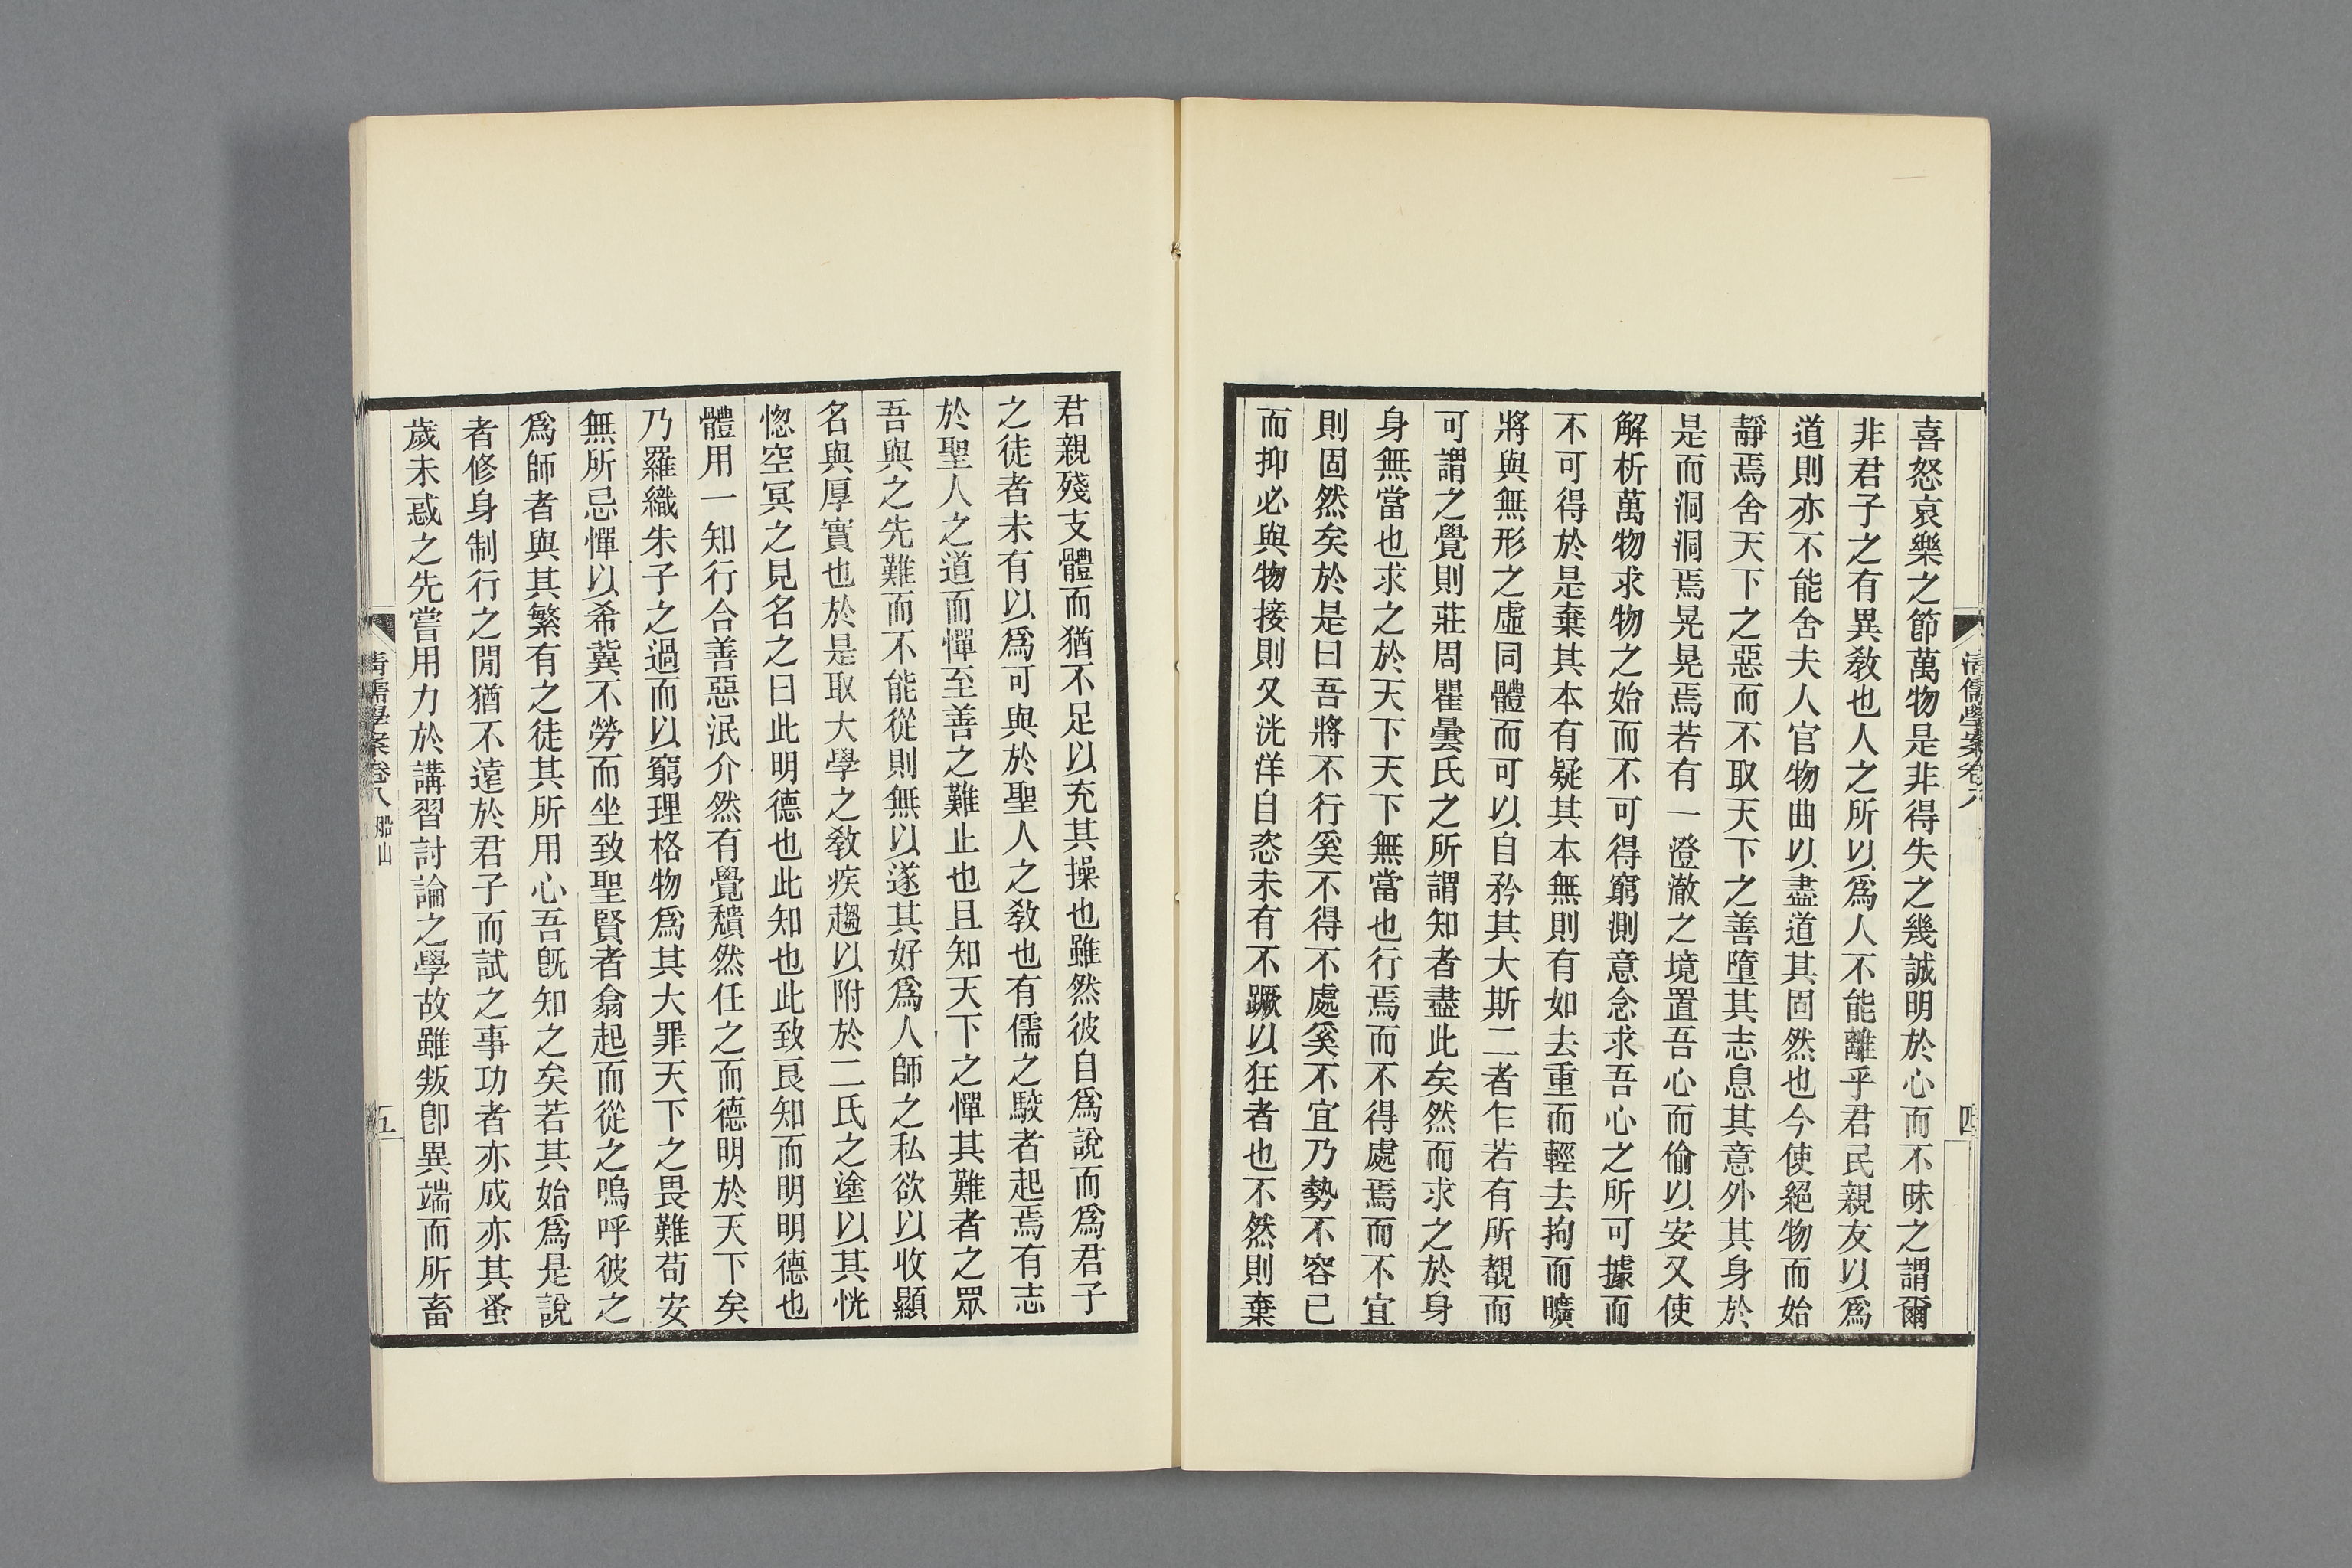 清儒學案卷八
四
喜怒哀樂之節萬物是非得失之幾誠明於心而不昧之謂爾
非君子之有異教也人之所以爲人不能離乎君民親友以爲
道則亦不能舍夫人官物曲以盡道其固然也今使絕物而始
靜焉舍天下之惡而不取天下之善墮其志息其意外其身於
是而洞洞焉晃晃焉若有一澄澈之境置吾心而偷以安又使
解析萬物求物之始而不可得窮測意念求吾心之所可據而
不可得於是棄其本有疑其本無則有如去重而輕去拘而曠
將與無形之虛同體而可以自矜其大斯二者乍若有所覩而
可謂之覺則莊周瞿曇氏之所謂知者盡此矣然而求之於身
身無當也求之於天下天下無當也行焉而不得處焉而不宜
則固然矣於是曰吾將不行奚不得不處奚不宜乃勢不容已
而抑必與物接則又洸洋自恣未有不蹶以狂者也不然則棄
君親殘支體而猶不足以充其操也雖然彼自爲說而爲君子
之徒者未有以爲可與於聖人之教也有儒之駮者起焉有志
於聖人之道而憚至善之難止也且知天下之憚其難者之眾
吾與之先難而不能從則無以遂其好爲人師之私欲以收顯
名與厚實也於是取大學之教疾趨以附於二氏之塗以其恍
惚空冥之見名之曰此明德也此知也此致良知而明明德也
體用一知行合善惡泯介然有覺穨然任之而德明於天下矣
乃羅織朱子之過而以窮理格物爲其大罪天下之畏難苟安
無所忌憚以希冀不勞而坐致聖賢者翕起而從之嗚呼彼之
爲師者與其繁有之徒其所用心吾旣知之矣若其始爲是說
者修身制行之閒猶不遠於君子而試之事功者亦成亦其蚤
歲未惎之先嘗用力於講習討論之學故雖叛卽異端而所畜
清儒學案卷八 船山
五